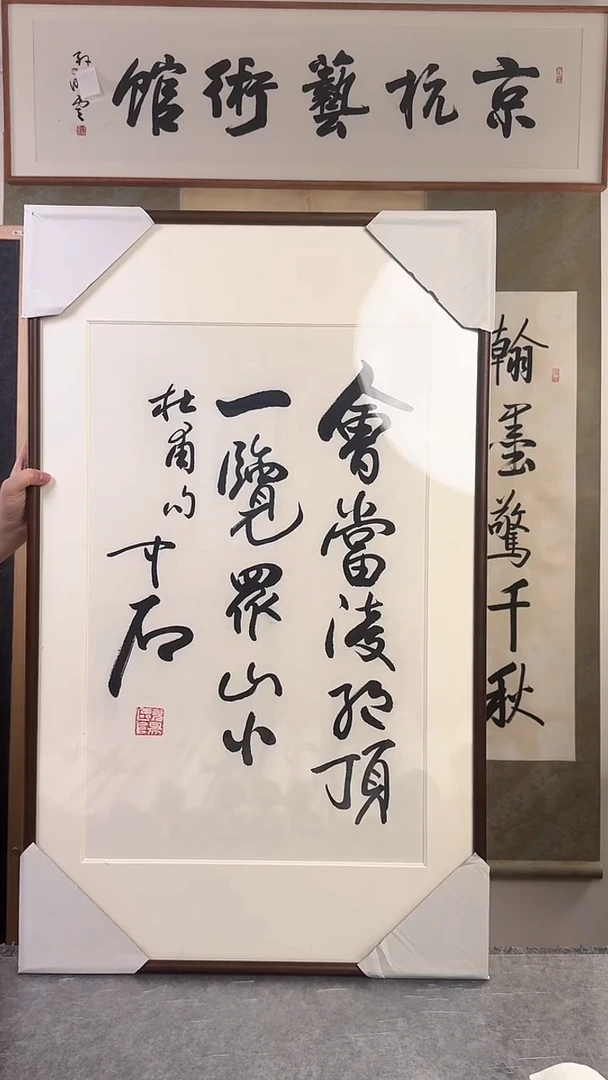 京杭藝術館
會當淩绝頂
一覽眾山小
杜甫句 中石
翰墨驚千秋